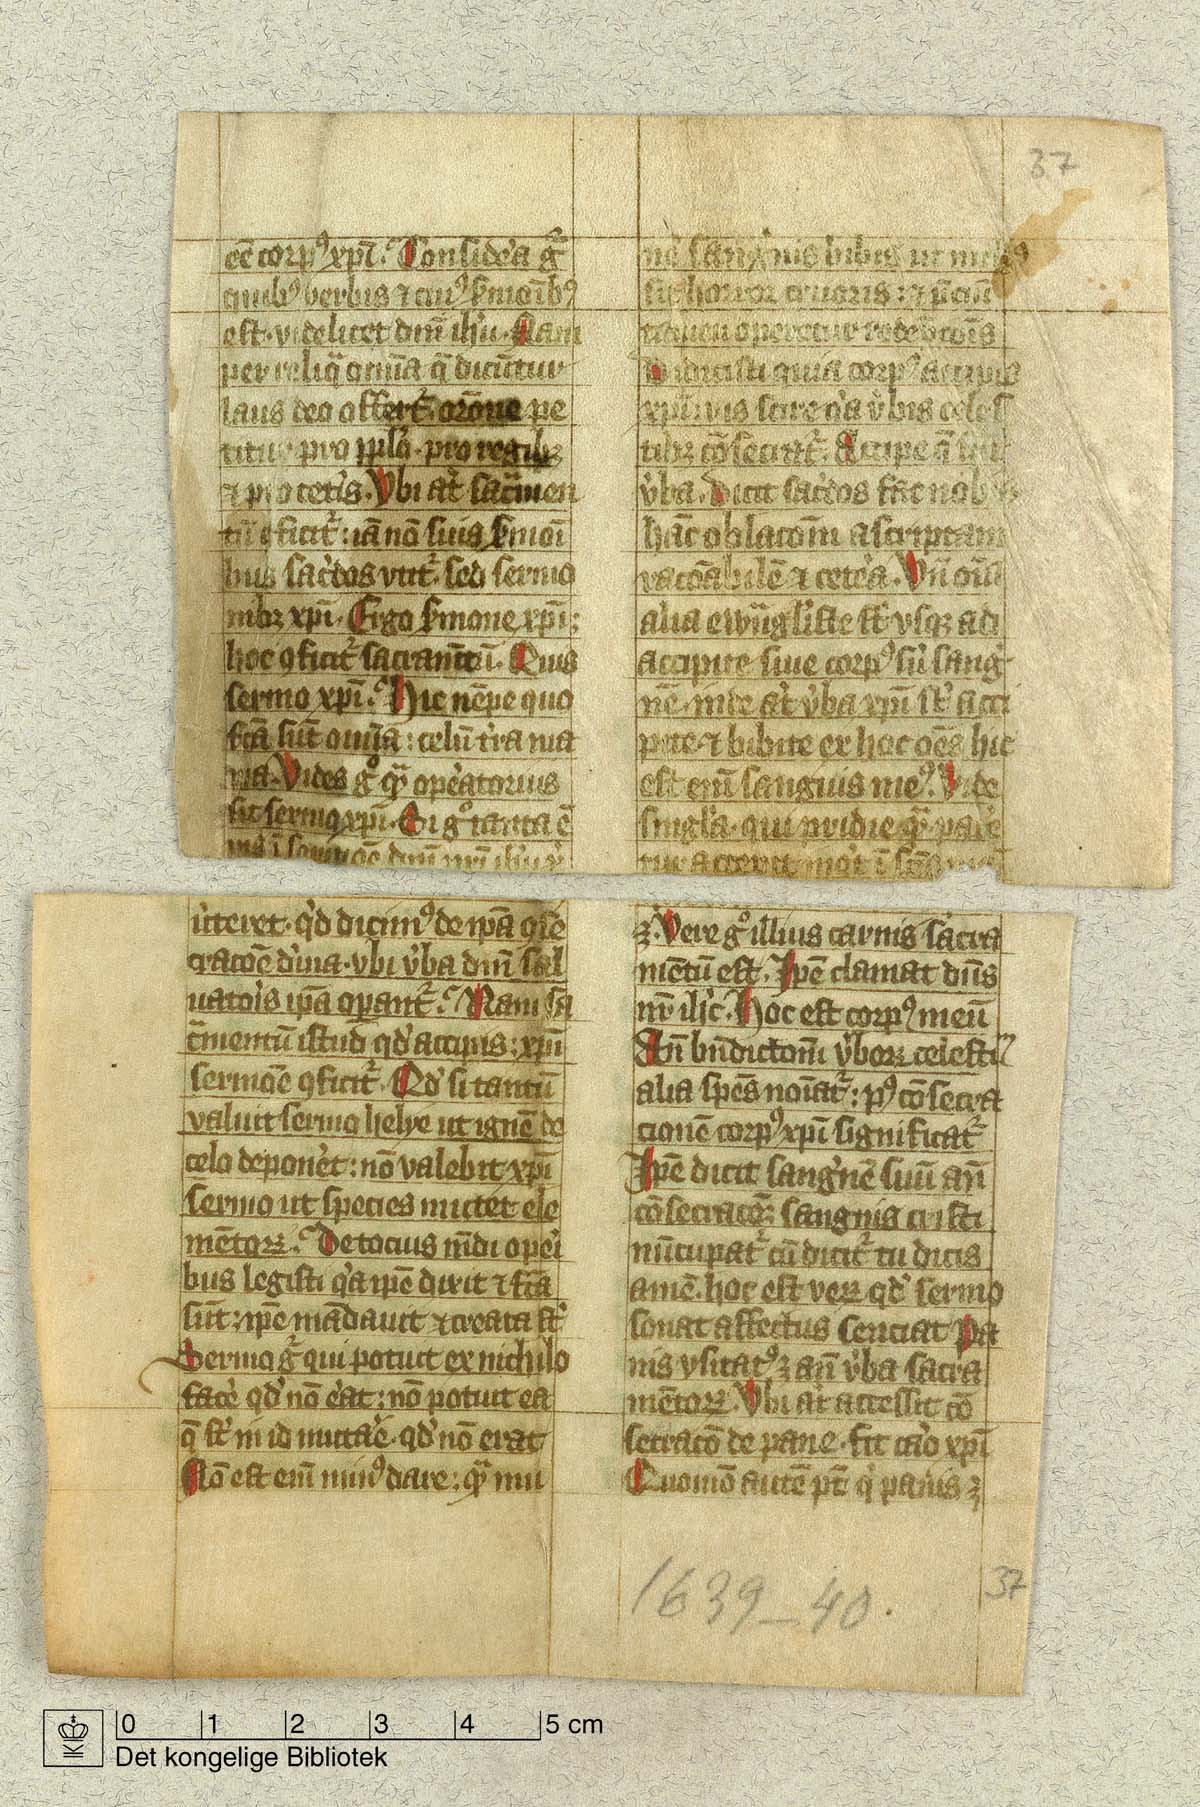 eē corpꝰ xp̄i. Considea g̊
quibꝰ verbis ⁊ cuiꝰ ẜmoībꝰ
est. videlicet dn̄i ih̄u. Nam
per reliq̄ om̄ia q̄ dicūtur
laus deo offert᷑. or̄one pe
titur pro pplo. pro regibꝫ
⁊ pro ceteris. Vbi at̄ sac̄men
tū ꝯficit᷑: iā nō suis ẜmoī
bus sac̄dos vtit᷑. sed sermo
nibꝫ xp̄i. Ergo ẜmone xp̄i:
hoc ꝯficit᷑ sacram̄tū. Quis
sermo xp̄i. Hic nēpe quo
fc̄a sūt om̄ia: celū t̄ra ma
ria. Vides g̊ qꝫ op̄atorius
sit sermo xp̄i. Si g̊ tanta ē
vis ī sermōe dn̄i nr̄i ih̄u xp̄i
ne sangnis bibis ut nullꝰ
sit horror cruoris: ⁊ p̄ciū
tamen operetur redēptōis
Didicisti quia corpꝰ accipis
xp̄i vis scire qa v̄bis celes
tibꝫ cōsecrat᷑. Accipe q̄ sūt
v̄ba. Dicit sac̄dos fac nobis
hāc oblacōm ascriptam
racōabilē ⁊ cetea. Vn̄ om̄ia
alia ewāgliste st̄ vsqꝫ adi
accipite siue corpꝰ siū sang
nē. inde at̄ v̄ba xp̄i st̄ acci
pite ⁊ bibite ex hoc oēs hic
est em̄ sanguis meꝰ. Vide
singla. qui pridie qꝫ pate
ret᷑ accepit inqt ī scīs manibꝰ
ūteret. qd̄ dicimꝰ de ip̄a ꝯse
cracōe diuina. vbi v̄ba dn̄i sal
uatoris ip̄a opant᷑. Nam sa
c̄mentū istud qd̄ accipis: xp̄i
sermōe ꝯficit᷑. Qd̄ si tantū
valuit sermo helye ut ignē de
celo deponet: nō valebit xp̄i
sermo ut species mutet ele
mētoꝝ. De tocius mūdi opei
bus legisti qa ip̄e dixit ⁊ fc̄a
sūt: ip̄e mādauit ⁊ creata st̄
Sermo g̊ qui potuit ex nichilo
face qd̄ nō eat: nō potuit ea
q̄ st̄ in id mutae. qd̄ nō erat
Nō est em̄ minꝰ dare: qꝫ mu
ꝫ. Vere g̊ illius carnis sacra
mētū est. Ip̄e clamat dn̄s
nr̄ ih̄c. Hoc est corpꝰ meū
An̄ bn̄dictōm v̄boꝝ celestiū
alia sp̄es noīat᷑: pꝰ cōsecra
cionē corpꝰ xp̄i significat᷑
Ip̄e dicit sangnē suū an̄
cōsecracoꝫ sangnis cristi
nūcupat᷑ cū dicit᷑ tu dicis
amē. hoc est veꝝ qd̄ sermo
sonat affectus senciat Pa
nis vsitatꝰ ꝫ an̄ v̄ba sacra
mētoꝝ. Vbi at̄ accessit cō
secracō de pane. fit caro xp̄i
Quomō autē pt̄ q̇ panis ꝫ
37
1639-40.
37
0 1 2 3 4 5 cm
Det kongelige Bibliotek